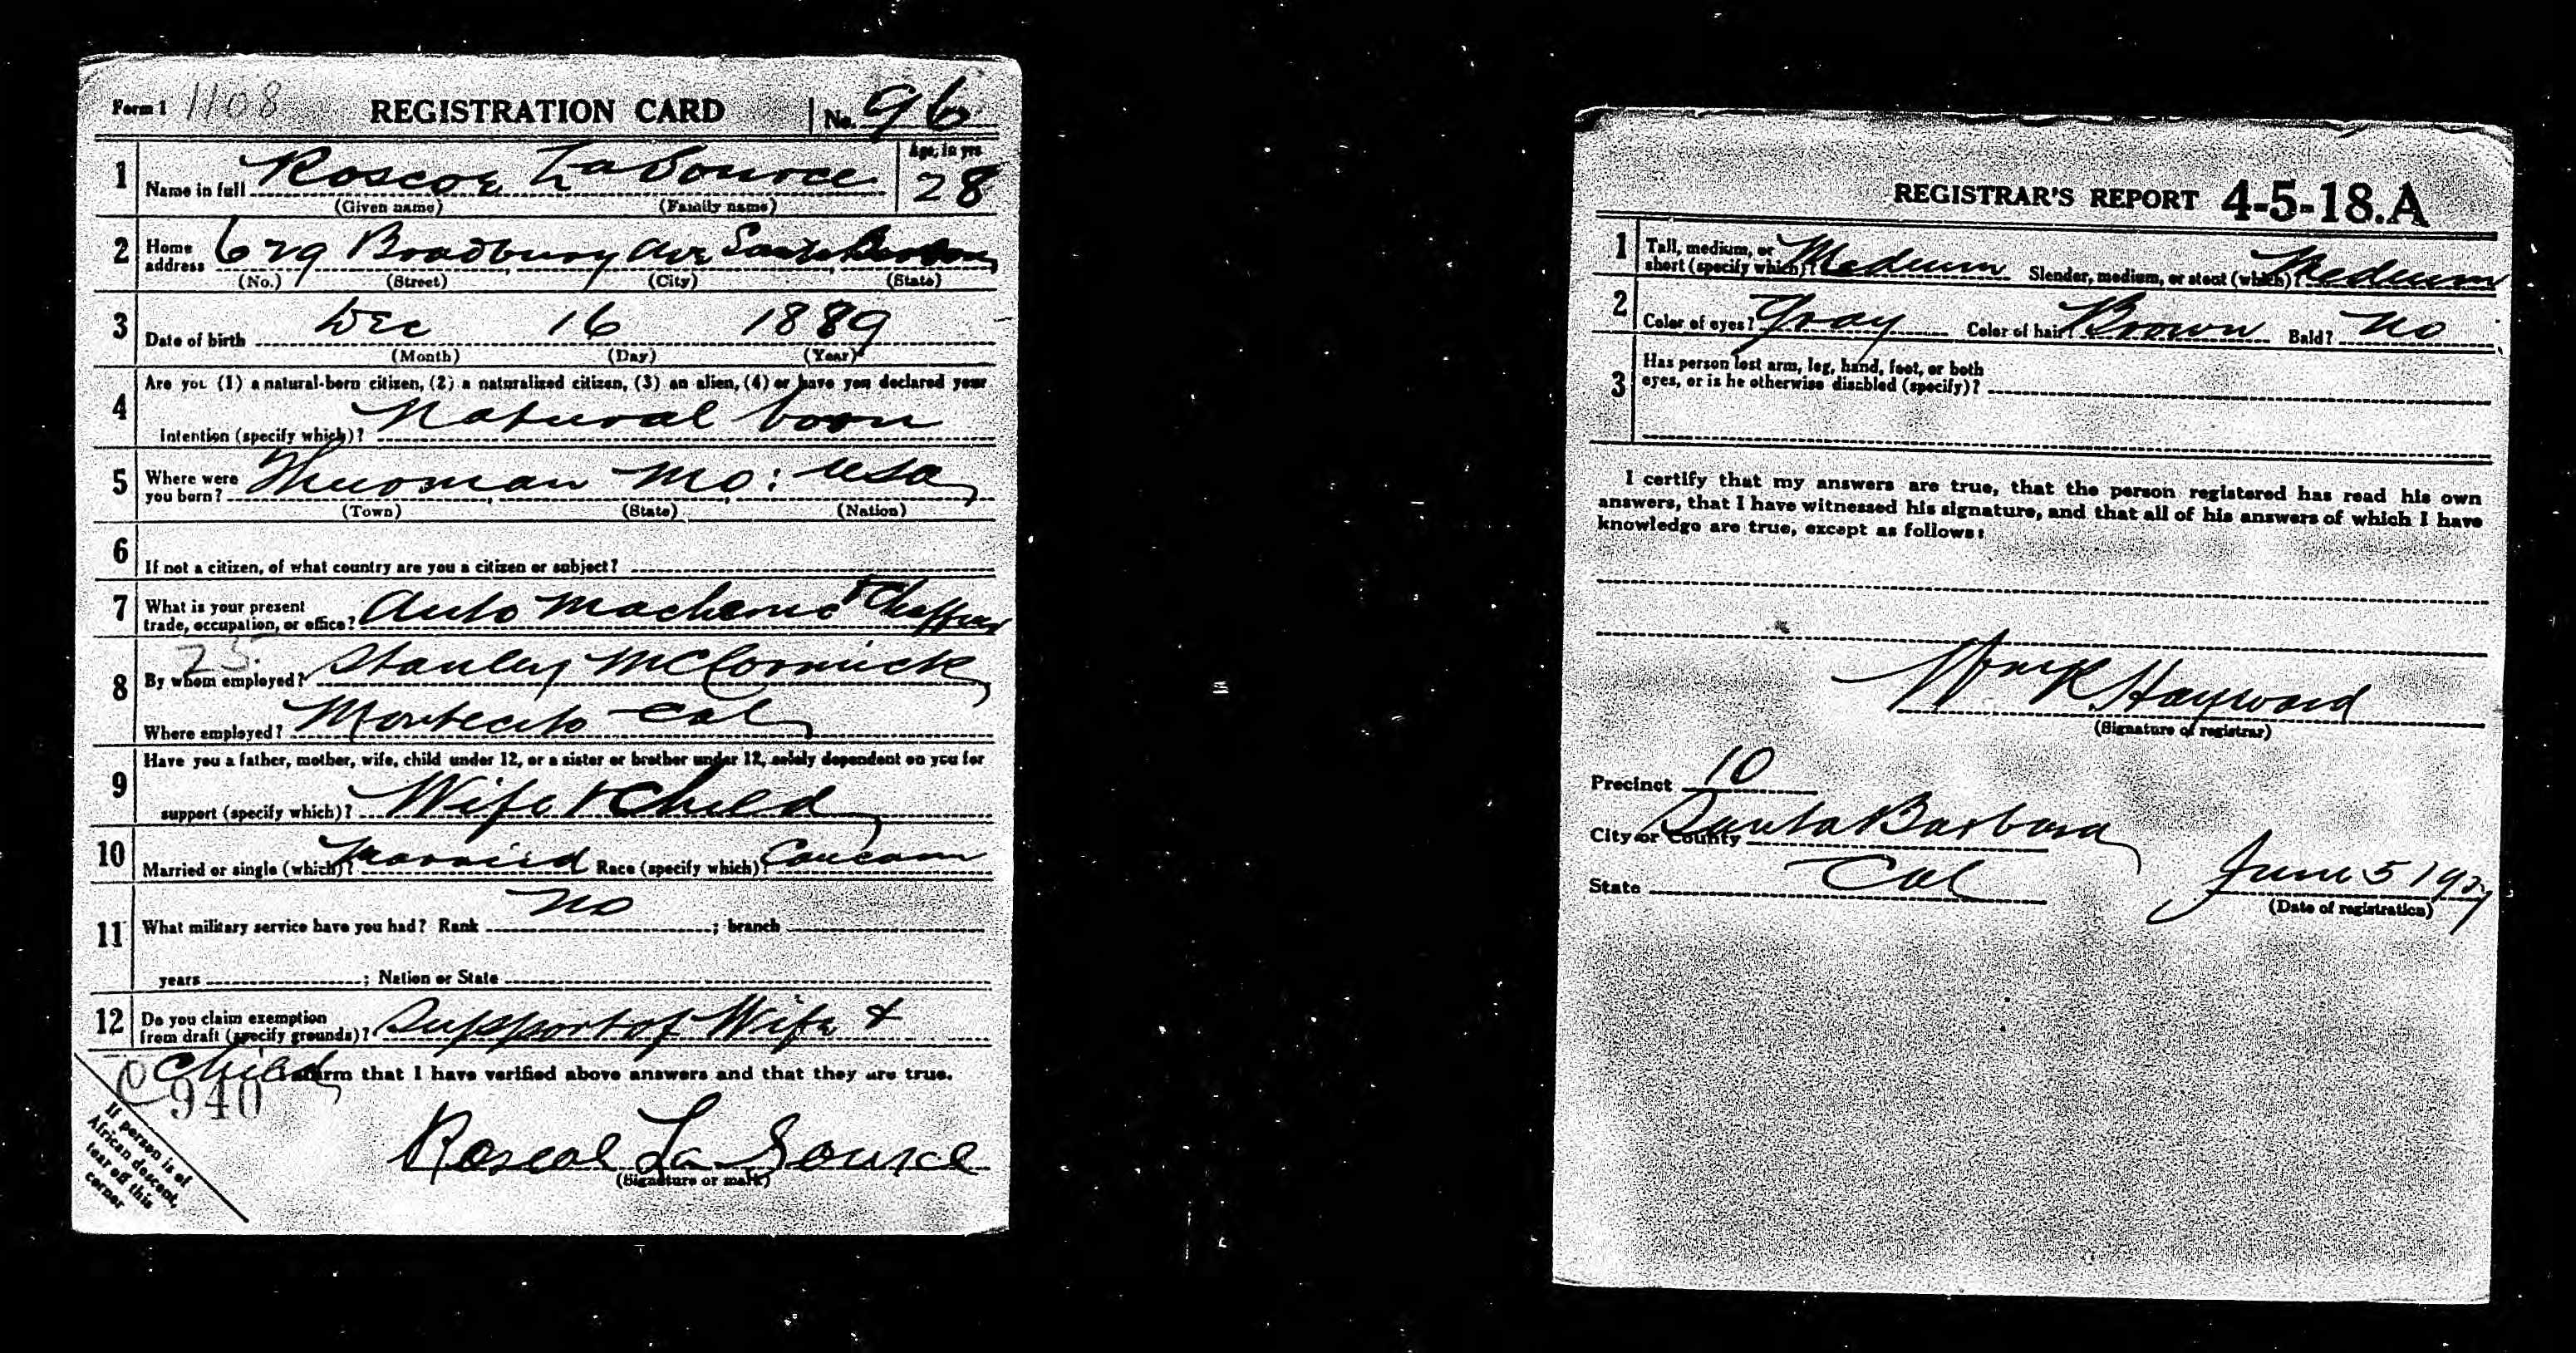 Form 1 1108 REGISTRATION CARD No. 96
1 Name in full Roscoe LaSource Age, in yrs 28
(Given name) (Family name)
2 Home address 629 Bradbury Ave Santa Barbara
(No.) (Street) (City) (State)
3 Date of birth Dec 16 1889
(Month) (Day) (Year)
4 Are you (1) a natural-born citizen, (2) a naturalized citizen, (3) an alien, (4) or have you declared your
intention (specify which)? Natural born
5 Where were you born? Thurman Mo: USA
(Town) (State) (Nation)
6 If not a citizen, of what country are you a citizen or subject?
7 What is your present trade, occupation, or office? Auto Machanic + Chaffeur
25.
8 By whom employed? Stanley McCormick
Where employed? Montecito Cal
9 Have you a father, mother, wife, child under 12, or a sister or brother under 12, solely dependent on you for
support (specify which)? Wife + Child
10 Married or single (which)? Married Race (specify which)?
11 What military service have you had? Rank no ; branch
years ; Nation or State
12 Do you claim exemption from draft (specify grounds)? Support of Wife +
Child
I affirm that I have verified above answers and that they are true.
940
Roscoe La Source
(Signature or mark)
If person is of
African descent,
tear off this
corner
REGISTRAR'S REPORT 4-5-18.A
1 Tall, medium, or short (specify which)? Medium Slender, medium, or stout (which)? Medium
2 Color of eyes? Gray Color of hair? Brown Bald? no
3 Has person lost arm, leg, hand, foot, or both
eyes, or is he otherwise disabled (specify)?
I certify that my answers are true, that the person registered has read his own
answers, that I have witnessed his signature, and that all of his answers of which I have
knowledge are true, except as follows:
Wm R. Hayward
(Signature of registrar)
Precinct 10
City or County Santa Barbara
State Cal June 5 1917
(Date of registration)